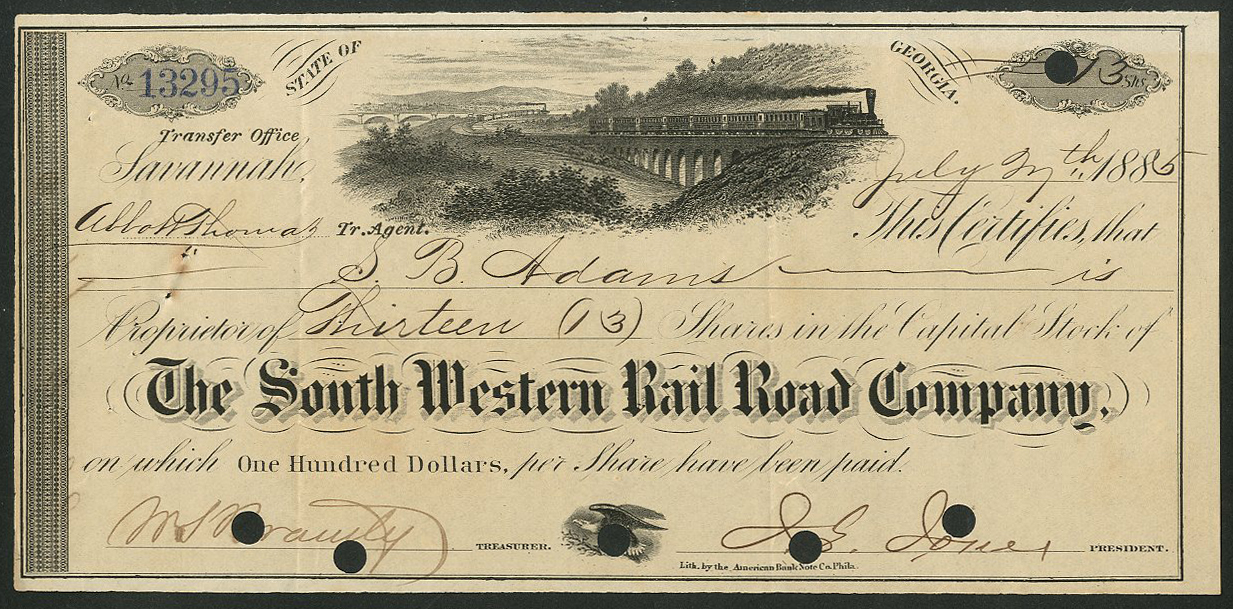 No. 13295
STATE OF
GEORGIA.
13 Shs
Transfer Office,
Savannah
July 27th, 1885
Tr. Agent.
This Certifies, that
S. B. Adams is
Proprietor of Thirteen (13) Shares in the Capital Stock of
The South Western Rail Road Company,
on which One Hundred Dollars, per Share have been paid.
TREASURER.
J. E. Jones PRESIDENT.
Lith. by the American Bank Note Co. Phila.